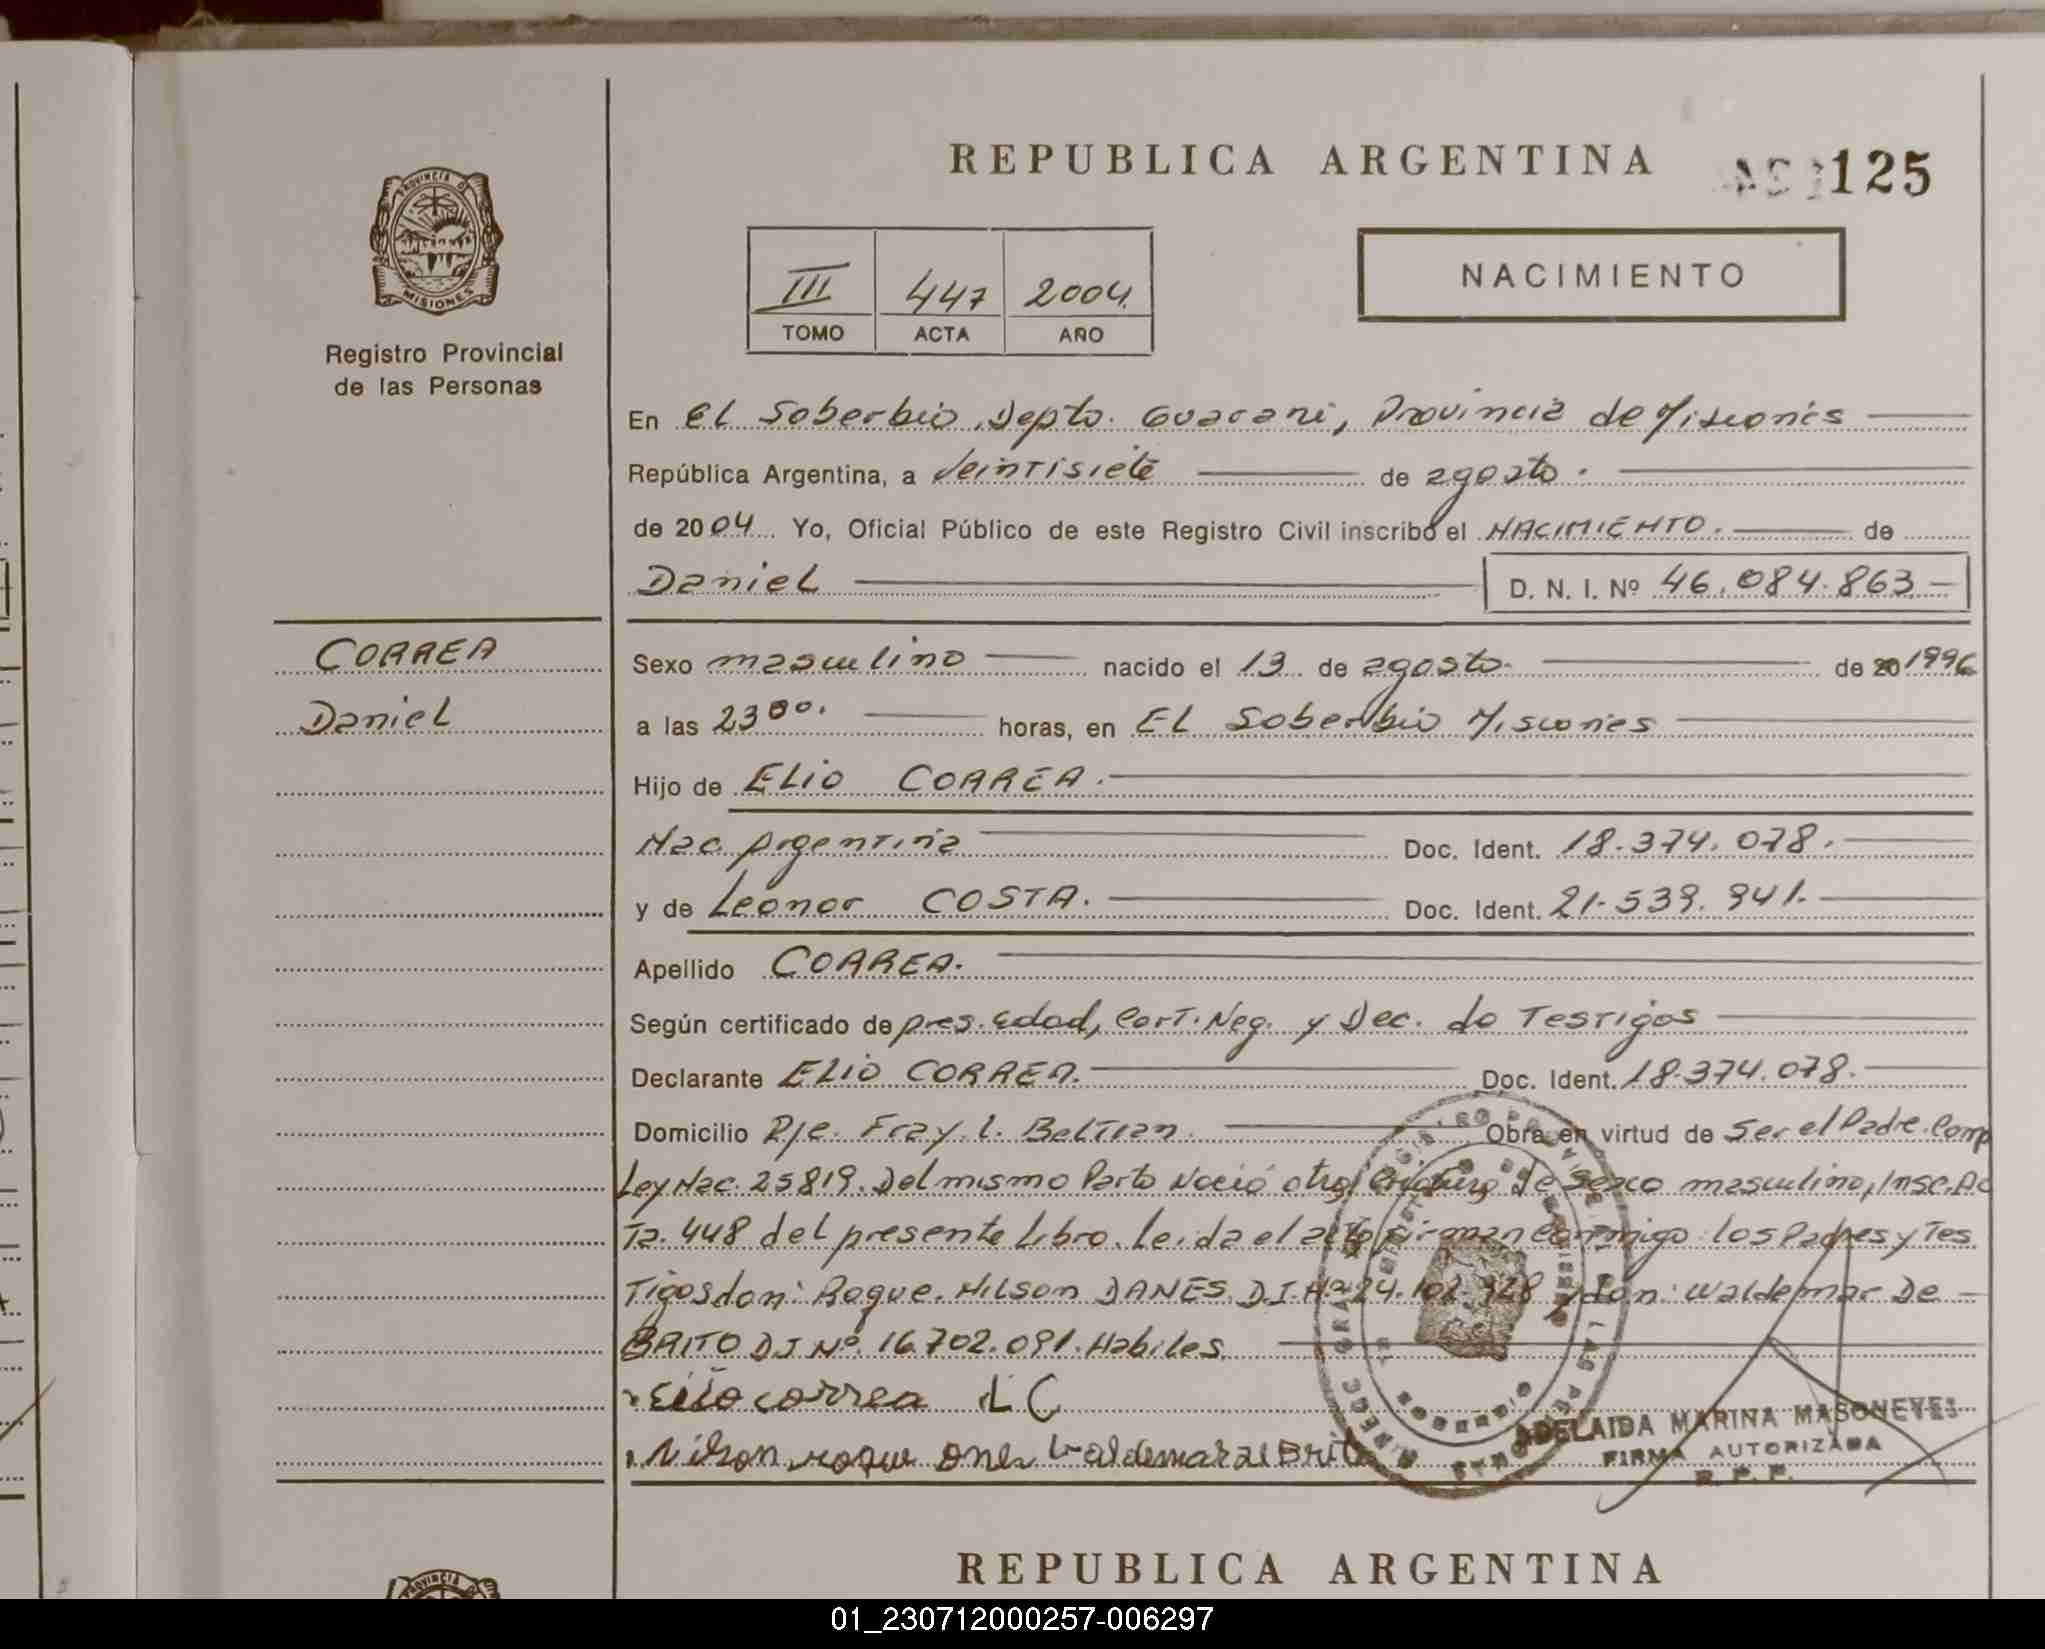 REPUBLICA ARGENTINA
125
PROVINCIA DE
MISIONES
Registro Provincial
de las Personas
III 447 2004
TOMO ACTA AÑO
NACIMIENTO
En El Soberbio, Depto. Guarani, Provincia de Misiones
República Argentina, a Veintisiete de agosto.
de 2004 Yo, Oficial Público de este Registro Civil inscribo el NACIMIENTO. de
Daniel D. N. I. Nº 46.084.863
CORREA
Daniel
Sexo masculino nacido el 13 de agosto. de 20 1996
a las 23 00. horas, en El Soberbio Misiones
Hijo de ELIO CORREA.
Nac. Argentina Doc. Ident. 18.374.078.
y de Leonor COSTA. Doc. Ident. 21.539.941.
Apellido CORREA.
Según certificado de pres. Edad, Cert. Neg. y Dec. de Testigos
Declarante ELIO CORREA. Doc. Ident. 18.374.078.
Domicilio Pje. Fray. L. Beltran. Obra en virtud de Ser el Padre. Comp
Ley Nac. 25819. Del mismo Parto Nació otra Criatura de Sexo masculino, Insc. Ac
Ta. 448 del presente Libro. Leida el acta firman Conmigo los Padres y Tes
Tigos don: Roque. Nilson DANES. D.I. Nº 24. y don: Waldemar De
BRITO DJ Nº. 16.702.091. Habiles.
Elio correa L C
Nilson roque Waldemar de Brito
ADELAIDA MARINA MASONEVES
FIRMA AUTORIZADA
R. P. P.
REPUBLICA ARGENTINA
PROVINCIA
01_230712000257-006297